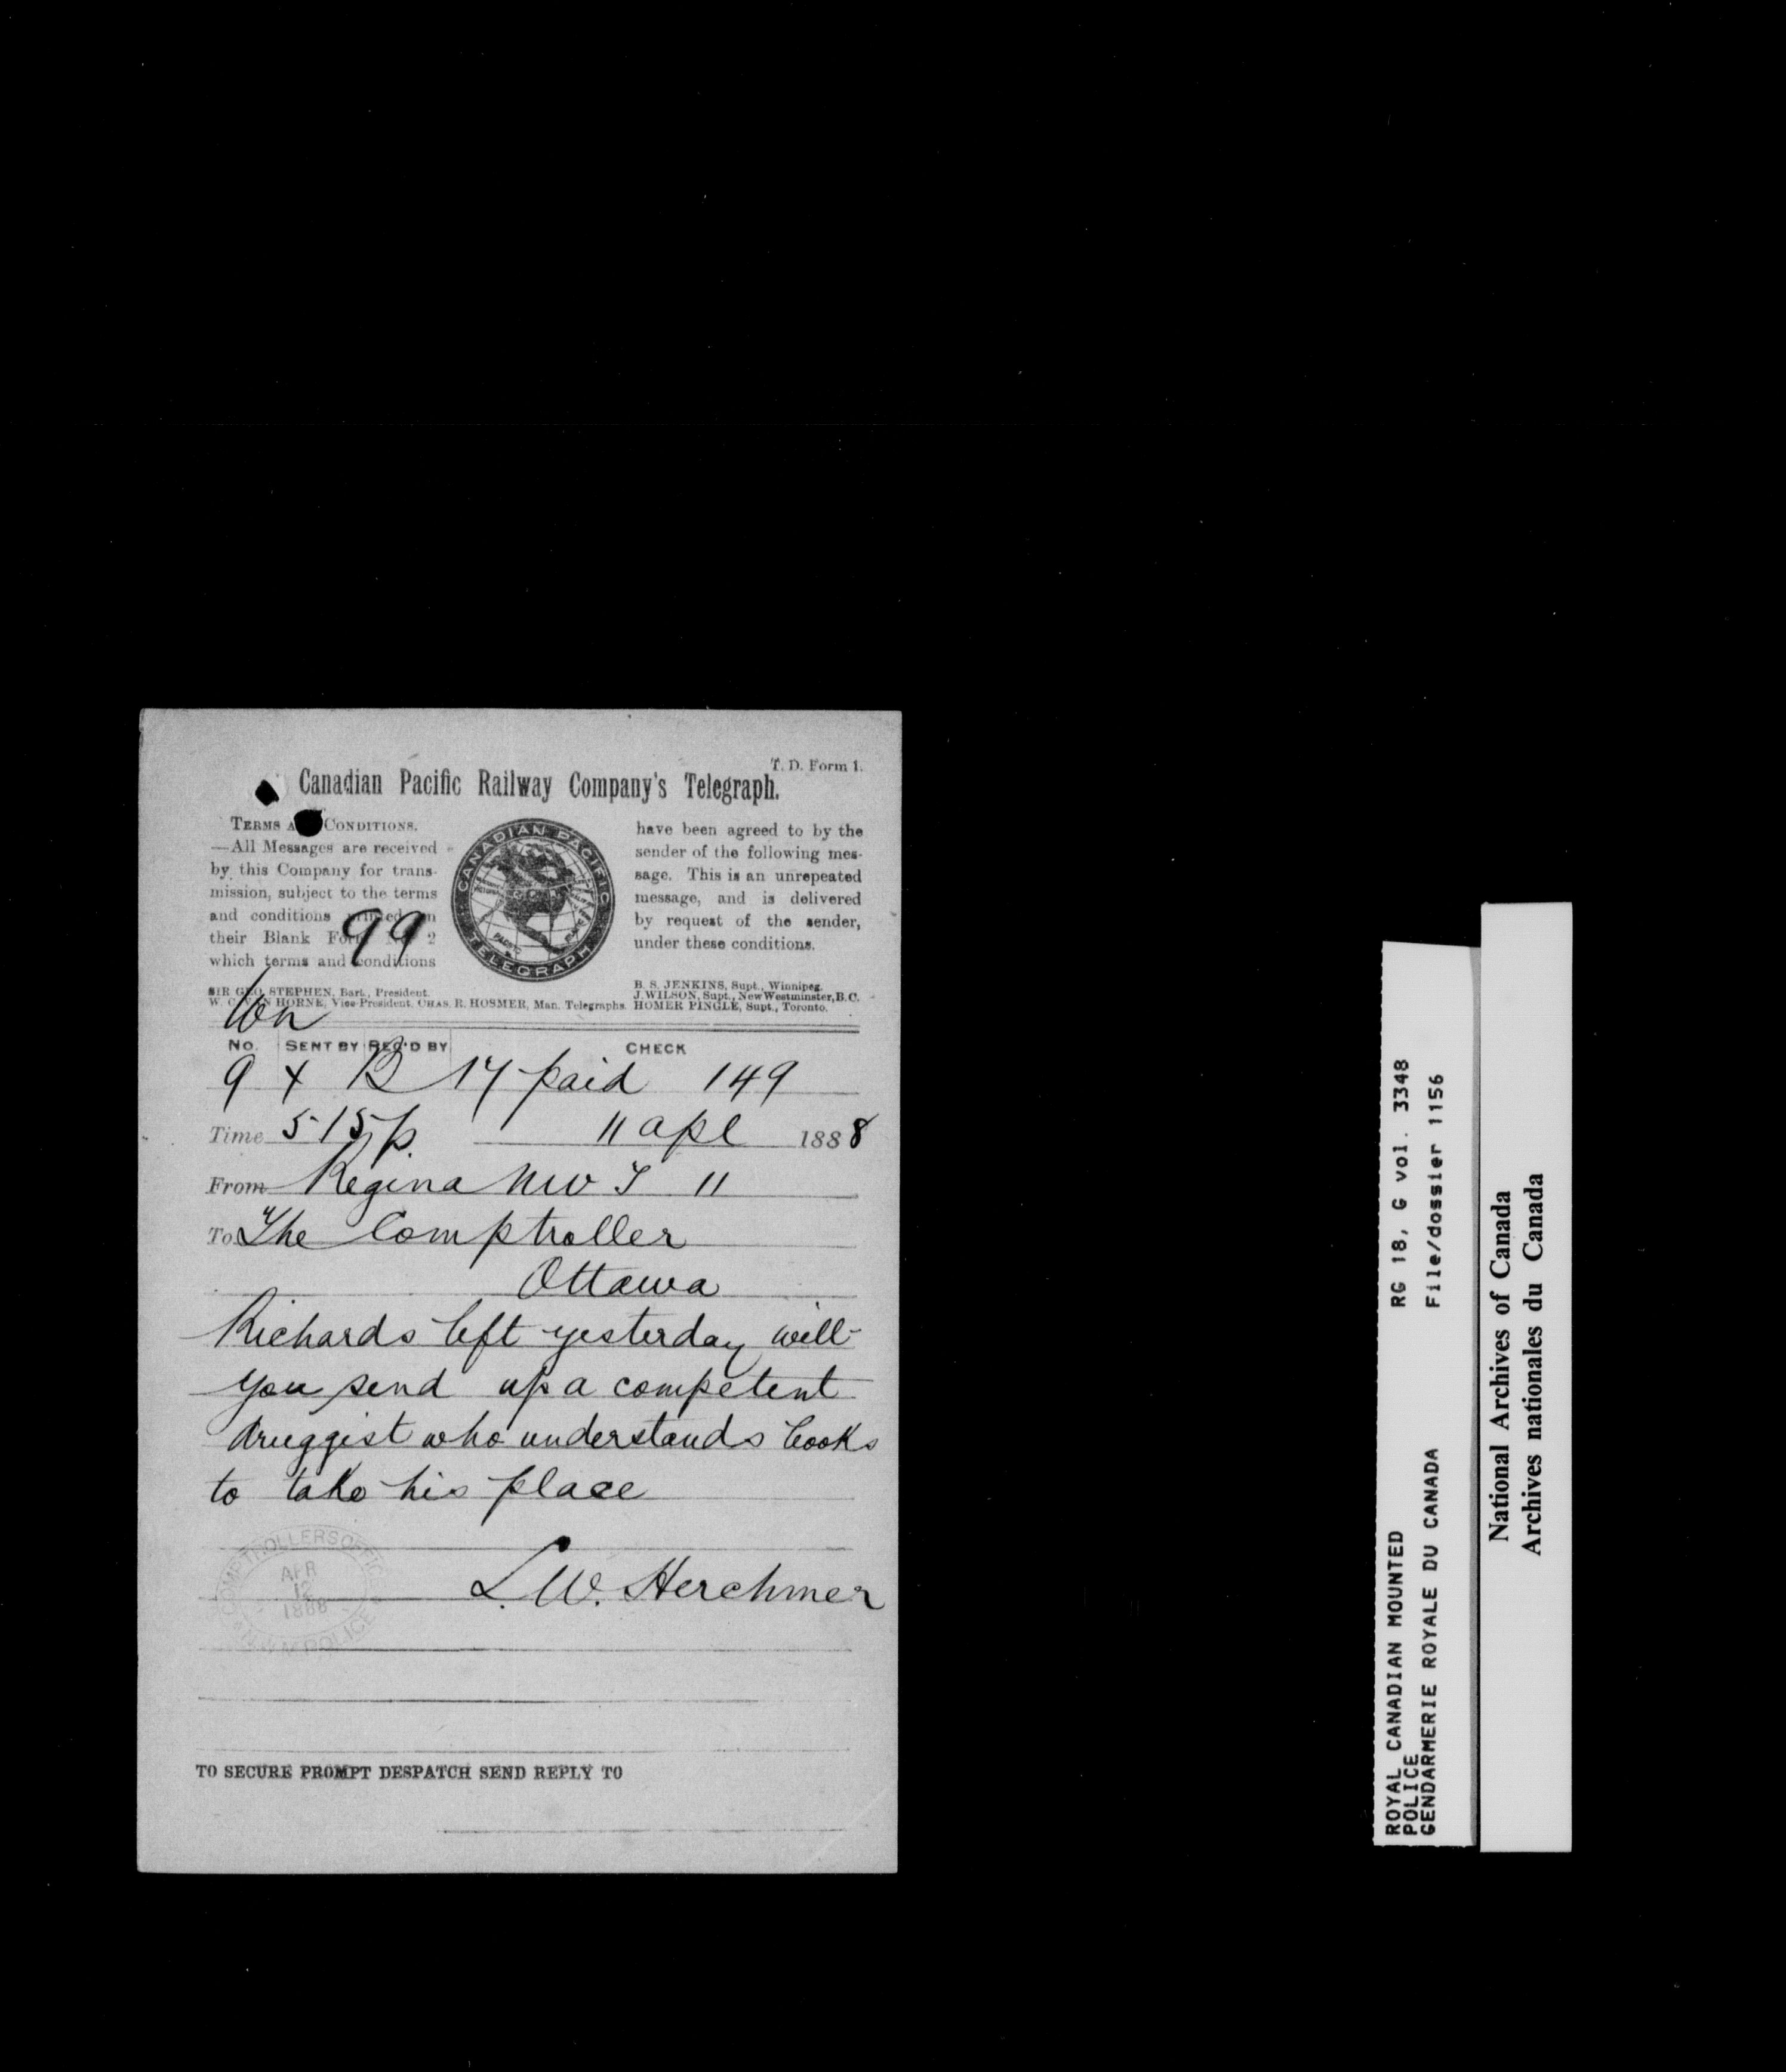 T. D. Form 1.
Canadian Pacific Railway Company's Telegraph.
TERMS A CONDITIONS.
—All Messages are received
by this Company for trans-
mission, subject to the terms
and conditions printed on
their Blank Form No. 2
which terms and conditions
99
CANADIAN PACIFIC
TELEGRAPH
have been agreed to by the
sender of the following mes-
sage. This is an unrepeated
message, and is delivered
by request of the sender,
under these conditions.
SIR GEO. STEPHEN, Bart., President.
W. C. VAN HORNE, Vice-President. CHAS. R. HOSMER, Man. Telegraphs.
B. S. JENKINS, Supt., Winnipeg.
J. WILSON, Supt., New Westminster, B.C.
HOMER PINGLE, Supt., Toronto.
No. SENT BY REC'D BY CHECK
9 X B 17 paid 149
Time 5 15 p. 11 apl 1888
From Regina NWT 11
To The Comptroller
Ottawa
Richards left yesterday will
you send up a competent
druggist who understands books
to take his place
L. W. Herchmer
COMPTROLLERS OFFICE
APR
12
1888
N.W.M. POLICE
TO SECURE PROMPT DESPATCH SEND REPLY TO
ROYAL CANADIAN MOUNTED RG 18, G vol. 3348
POLICE
GENDARMERIE ROYALE DU CANADA File/dossier 1156
National Archives of Canada
Archives nationales du Canada